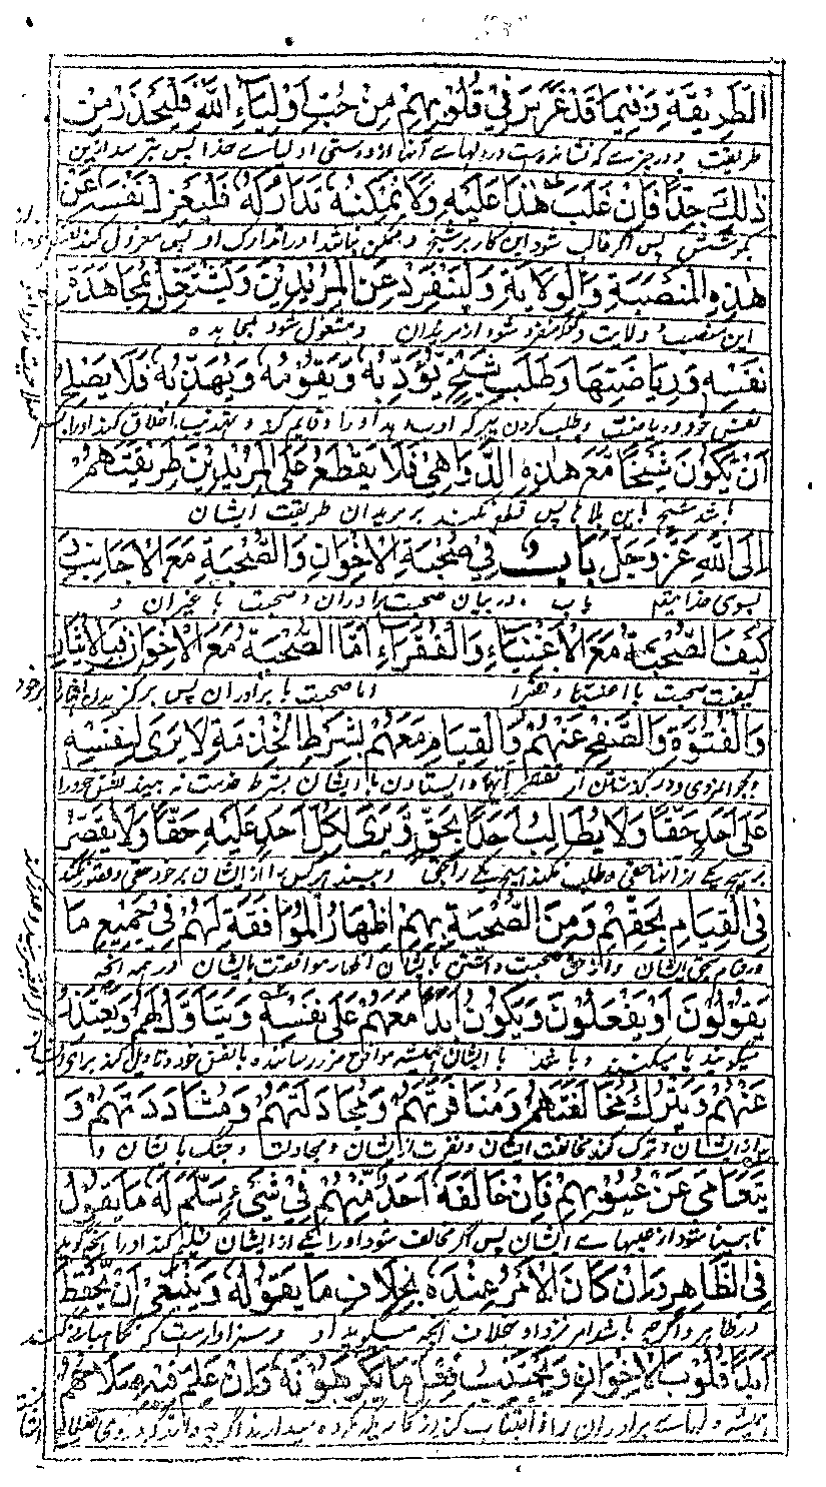 الطَّرِيْقَةِ وَفِيْمَا قَدْ غُرِسَ فِيْ قُلُوْبِهِمْ مِنْ حُبِّ اَوْلِيَاءِ اللّٰهِ فَلْيَحْذَرْ مِنْ
طریقت و در چیزے که نشانده است در دلهاے آنها از دوستی اولیاے خدا پس بترسد ازین
ذٰلِكَ جِدًّا فَاِنْ غَلَبَ هٰذَا عَلَيْهِ وَلَا يُمْكِنُهٗ تَدَارُكُهٗ فَلْيَعْزِلْ نَفْسَهٗ عَنْ
بکوشش پس اگر غالب شود این کار بر شیخ و ممکن نباشد او را تدارک او پس معزول کند
هٰذِهِ الْمَنْصَبَةِ وَالْوِلَايَةِ وَلْيَنْفَرِدْ عَنِ الْمُرِيْدِيْنَ وَلْيَشْتَغِلْ بِمُجَاهَدَةِ
این منصب و ولایت و منفرد شود از مریدان و مشغول شود بمجاهده
نَفْسِهٖ وَرِيَاضَتِهَا وَطَلَبِ شَيْخٍ يُؤَدِّبُهٗ وَيُقَوِّمُهٗ وَيُهَذِّبُهٗ فَلَا يَصْلُحُ
نفس خود و ریاضت و طلب کردن پیر که ادب دهد او را و قایم کند و تهذیب اخلاق کند او را
اَنْ يَّكُوْنَ شَيْخًا مَّعَ هٰذِهِ الدَّوَاهِيْ فَلَا يَقْطَعُ عَلَى الْمُرِيْدِيْنَ طَرِيْقَتَهُمْ
باشد شیخ باین بلاها پس قطع نکند بر مریدان طریقت ایشان
اِلَى اللّٰهِ عَزَّ وَجَلَّ بَابٌ فِيْ صُحْبَةِ الْاِخْوَانِ وَالصُّحْبَةِ مَعَ الْاَجَانِبِ وَ
بسوی خدایتعالی باب در بیان صحبت برادران و صحبت با غیران و
كَيْفَ الصُّحْبَةُ مَعَ الْاَغْنِيَاءِ وَالْفُقَرَاءِ اَمَّا الصُّحْبَةُ مَعَ الْاِخْوَانِ فَبِالْاِيْثَارِ
کیفیت صحبت با اغنیا و فقرا اما صحبت با برادران پس برگزیدن ایشان بر خود
وَالْفُتُوَّةِ وَالصَّفْحِ عَنْهُمْ وَالْقِيَامِ مَعَهُمْ بِشَرْطِ الْخِدْمَةِ لَا يَرٰى لِنَفْسِهٖ
و جوانمردی و در گذشتن از تقصیر آنها و ایستادن با ایشان بشرط خدمت نه بیند نفس خود را
عَلٰى اَحَدٍ حَقًّا وَلَا يُطَالِبُ اَحَدًا بِحَقٍّ وَيَرٰى لِكُلِّ اَحَدٍ عَلَيْهِ حَقًّا وَلَا يُقَصِّرُ
بر هیچ یکے از آنها حقی و طلب نکند هیچ یکے را بحقی و ببیند هر کس را از ایشان بر خود حقی و قصور نکند
فِى الْقِيَامِ بِحَقِّهِمْ وَمِنَ الصُّحْبَةِ بِهِمْ اِظْهَارُ الْمُوَافَقَةِ لَهُمْ فِيْ جَمِيْعِ مَا
در قیام بحق ایشان و از حق صحبت داشتن با ایشان اظهار موافقت بایشان در همه آنچه
يَقُوْلُوْنَ اَوْ يَفْعَلُوْنَ وَيَكُوْنُ اَبَدًا مَعَهُمْ عَلٰى نَفْسِهٖ وَيَتَاَوَّلُ لَهُمْ وَيَعْتَذِرُ
میگویند یا میکنند و باشد با ایشان همیشه موافق ضرر رساننده با نفس خود و تاویل کند برای
عَنْهُمْ وَيَتْرُكُ مُخَالَفَتَهُمْ وَمُنَافَرَتَهُمْ وَمُجَادَلَتَهُمْ وَمُشَادَدَتَهُمْ وَ
از ایشان و ترک کند مخالفت ایشان و نفرت از ایشان و مجادلت و جنگ با ایشان و
يَتَعَامٰى عَنْ عُيُوْبِهِمْ فَاِنْ خَالَفَهٗ اَحَدٌ مِّنْهُمْ فِيْ شَيْءٍ سَلَّمَ لَهٗ مَا يَقُوْلُ
نابینا شود از عیبهاے ایشان پس اگر مخالف شود او را یکے از ایشان تسلیم کند او را آنچه گوید
فِى الظَّاهِرِ وَاِنْ كَانَ الْاَمْرُ عِنْدَهٗ بِخِلَافِ مَا يَقُوْلُهٗ وَيَنْبَغِيْ اَنْ يَّحْفَظَ
در ظاهر و اگرچه باشد امر نزد او خلاف آنچه میگوید او و سزاوار است که نگاهبانی کند
اَبَدًا قُلُوْبَ الْاِخْوَانِ وَيَجْتَنِبَ فِعْلَ مَا يَكْرَهُوْنَهٗ وَاِنْ عَلِمَ فِيْهِ صَلَاحَهُمْ
همیشه دلهاے برادران را و اجتناب کند از کاریکه مکروه میدارند اگرچه داند که در وی